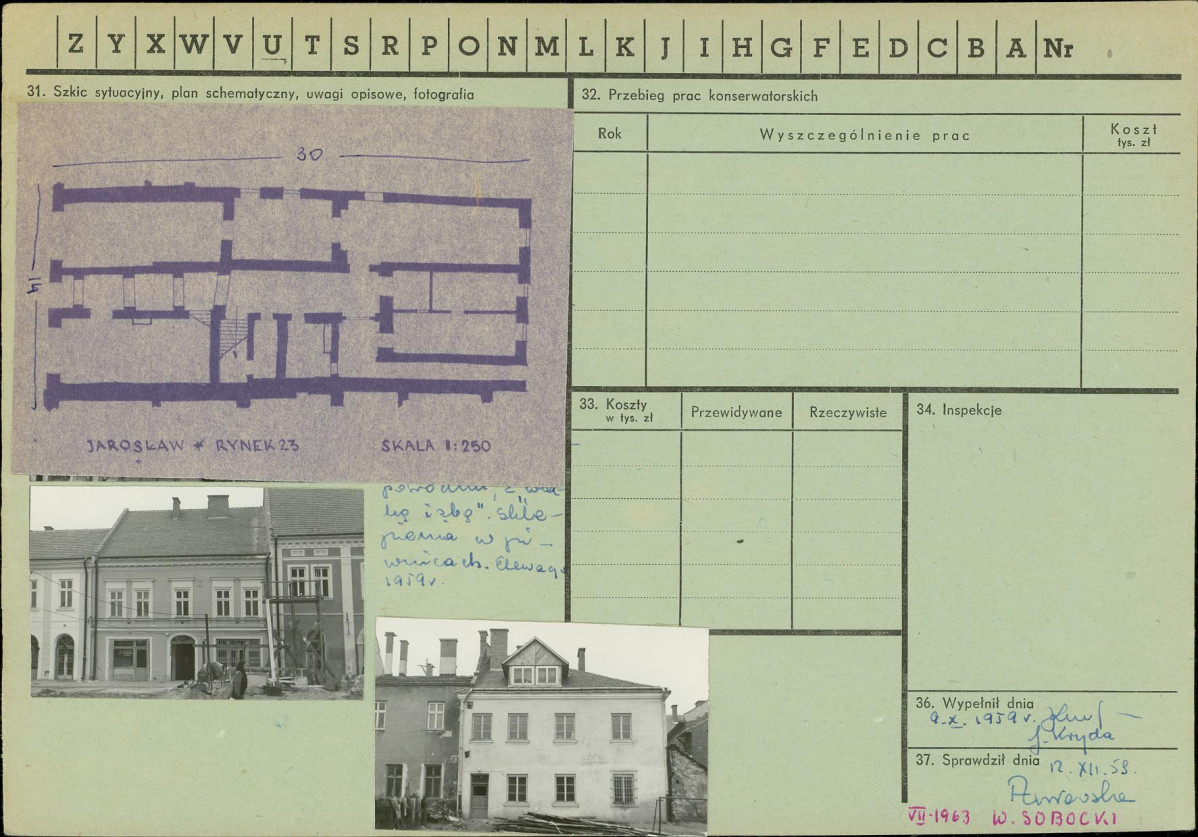 Z Y X W V U T S R P O N M L K J I H G F E D C B A Nr
31. Szkic sytuacyjny, plan schematyczny, uwagi opisowe, fotografia
30
14
JAROSŁAW * RYNEK 23 SKALA 1:250
izbą". Skle-
pienia w pi-
wnicach. Elewac.
1959r.
32. Przebieg prac konserwatorskich
Rok Wyszczególnienie prac Koszt
tys. zł
33. Koszty
w tys. zł
Przewidywane Rzeczywiste
34. Inspekcje
36. Wypełnił dnia
9.X. 1959 r.
J. Kryda
37. Sprawdził dnia
12. XII. 59.
VII-1963 W. SOBOCKI